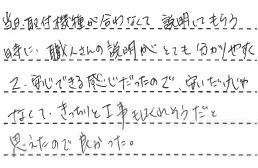 当日取付機種が合わなくて説明してもらう
時に、職人さんの説明がとても分かりやすく
て、安心できる感じだったので、安いだけじゃ
なくて、きっちりと工事もしてくれそうだと
思えたので良かった。